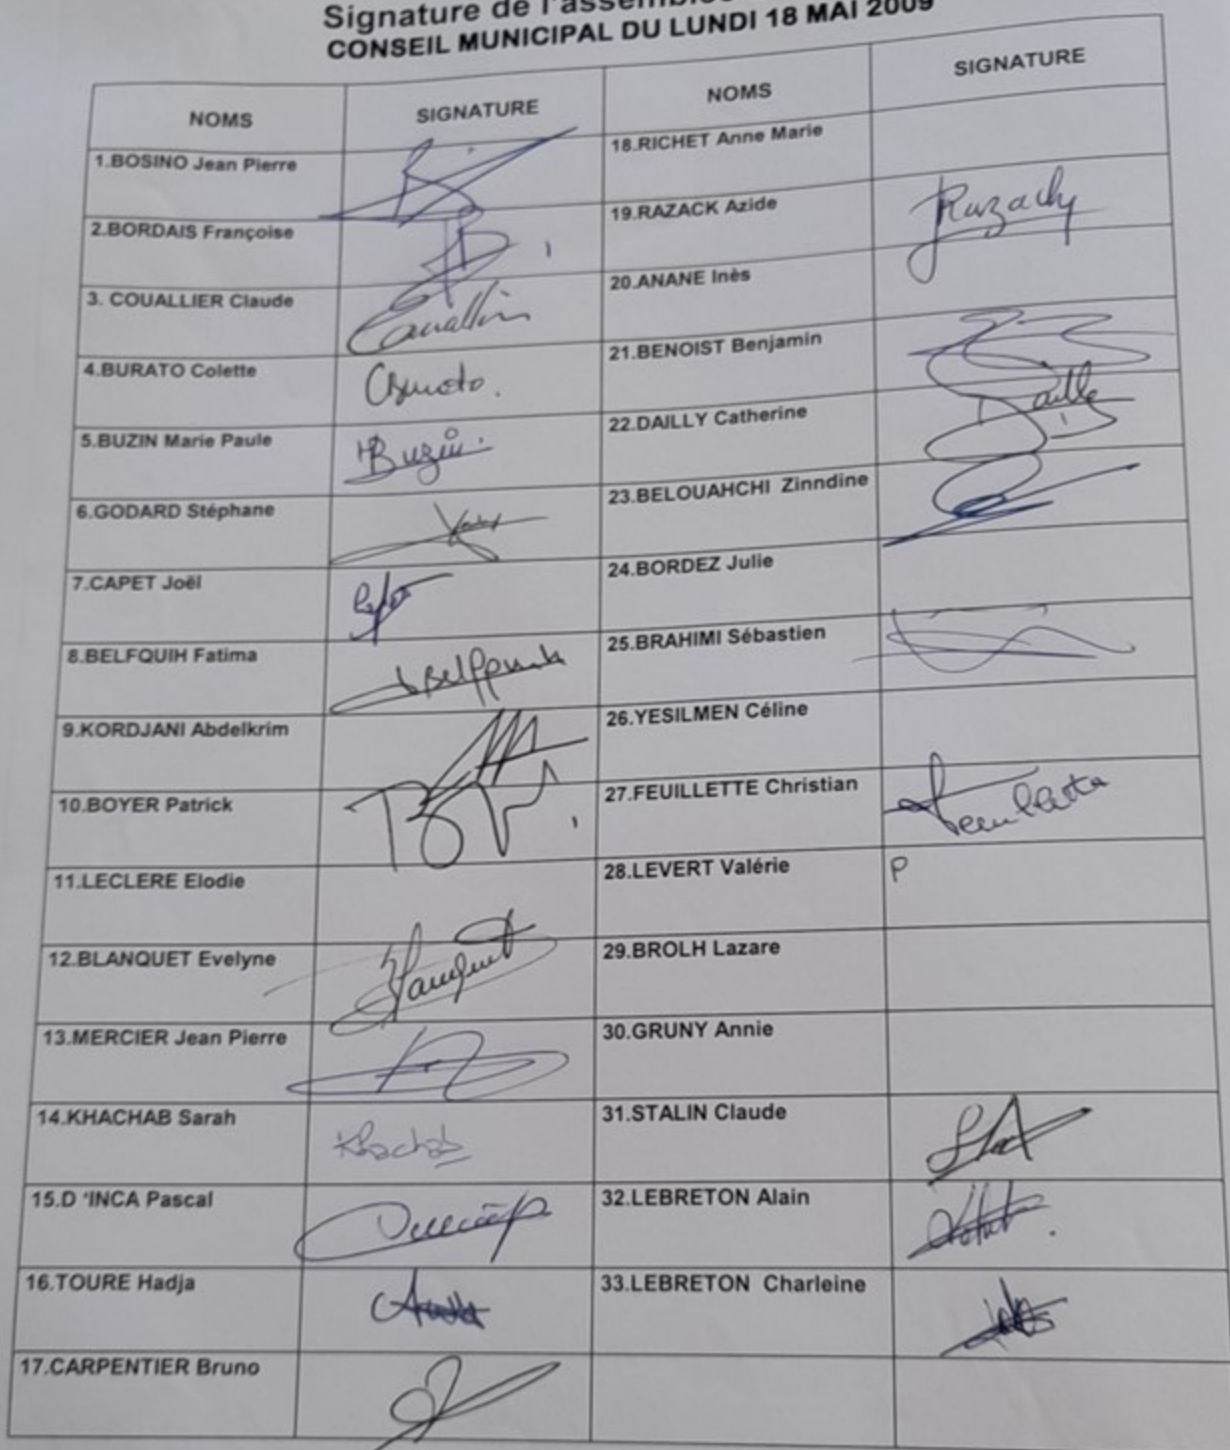 Signature de l'assemblée
CONSEIL MUNICIPAL DU LUNDI 18 MAI 2009
NOMS SIGNATURE NOMS SIGNATURE
1.BOSINO Jean Pierre 18.RICHET Anne Marie
2.BORDAIS Françoise 19.RAZACK Azide
3. COUALLIER Claude 20.ANANE Inès
4.BURATO Colette 21.BENOIST Benjamin
5.BUZIN Marie Paule Buzin 22.DAILLY Catherine Dailly
6.GODARD Stéphane 23.BELOUAHCHI Zinndine
7.CAPET Joël 24.BORDEZ Julie
8.BELFQUIH Fatima 25.BRAHIMI Sébastien
9.KORDJANI Abdelkrim 26.YESILMEN Céline
10.BOYER Patrick 27.FEUILLETTE Christian
11.LECLERE Elodie 28.LEVERT Valérie P
12.BLANQUET Evelyne 29.BROLH Lazare
13.MERCIER Jean Pierre 30.GRUNY Annie
14.KHACHAB Sarah Khachab 31.STALIN Claude
15.D 'INCA Pascal 32.LEBRETON Alain
16.TOURE Hadja 33.LEBRETON Charleine
17.CARPENTIER Bruno